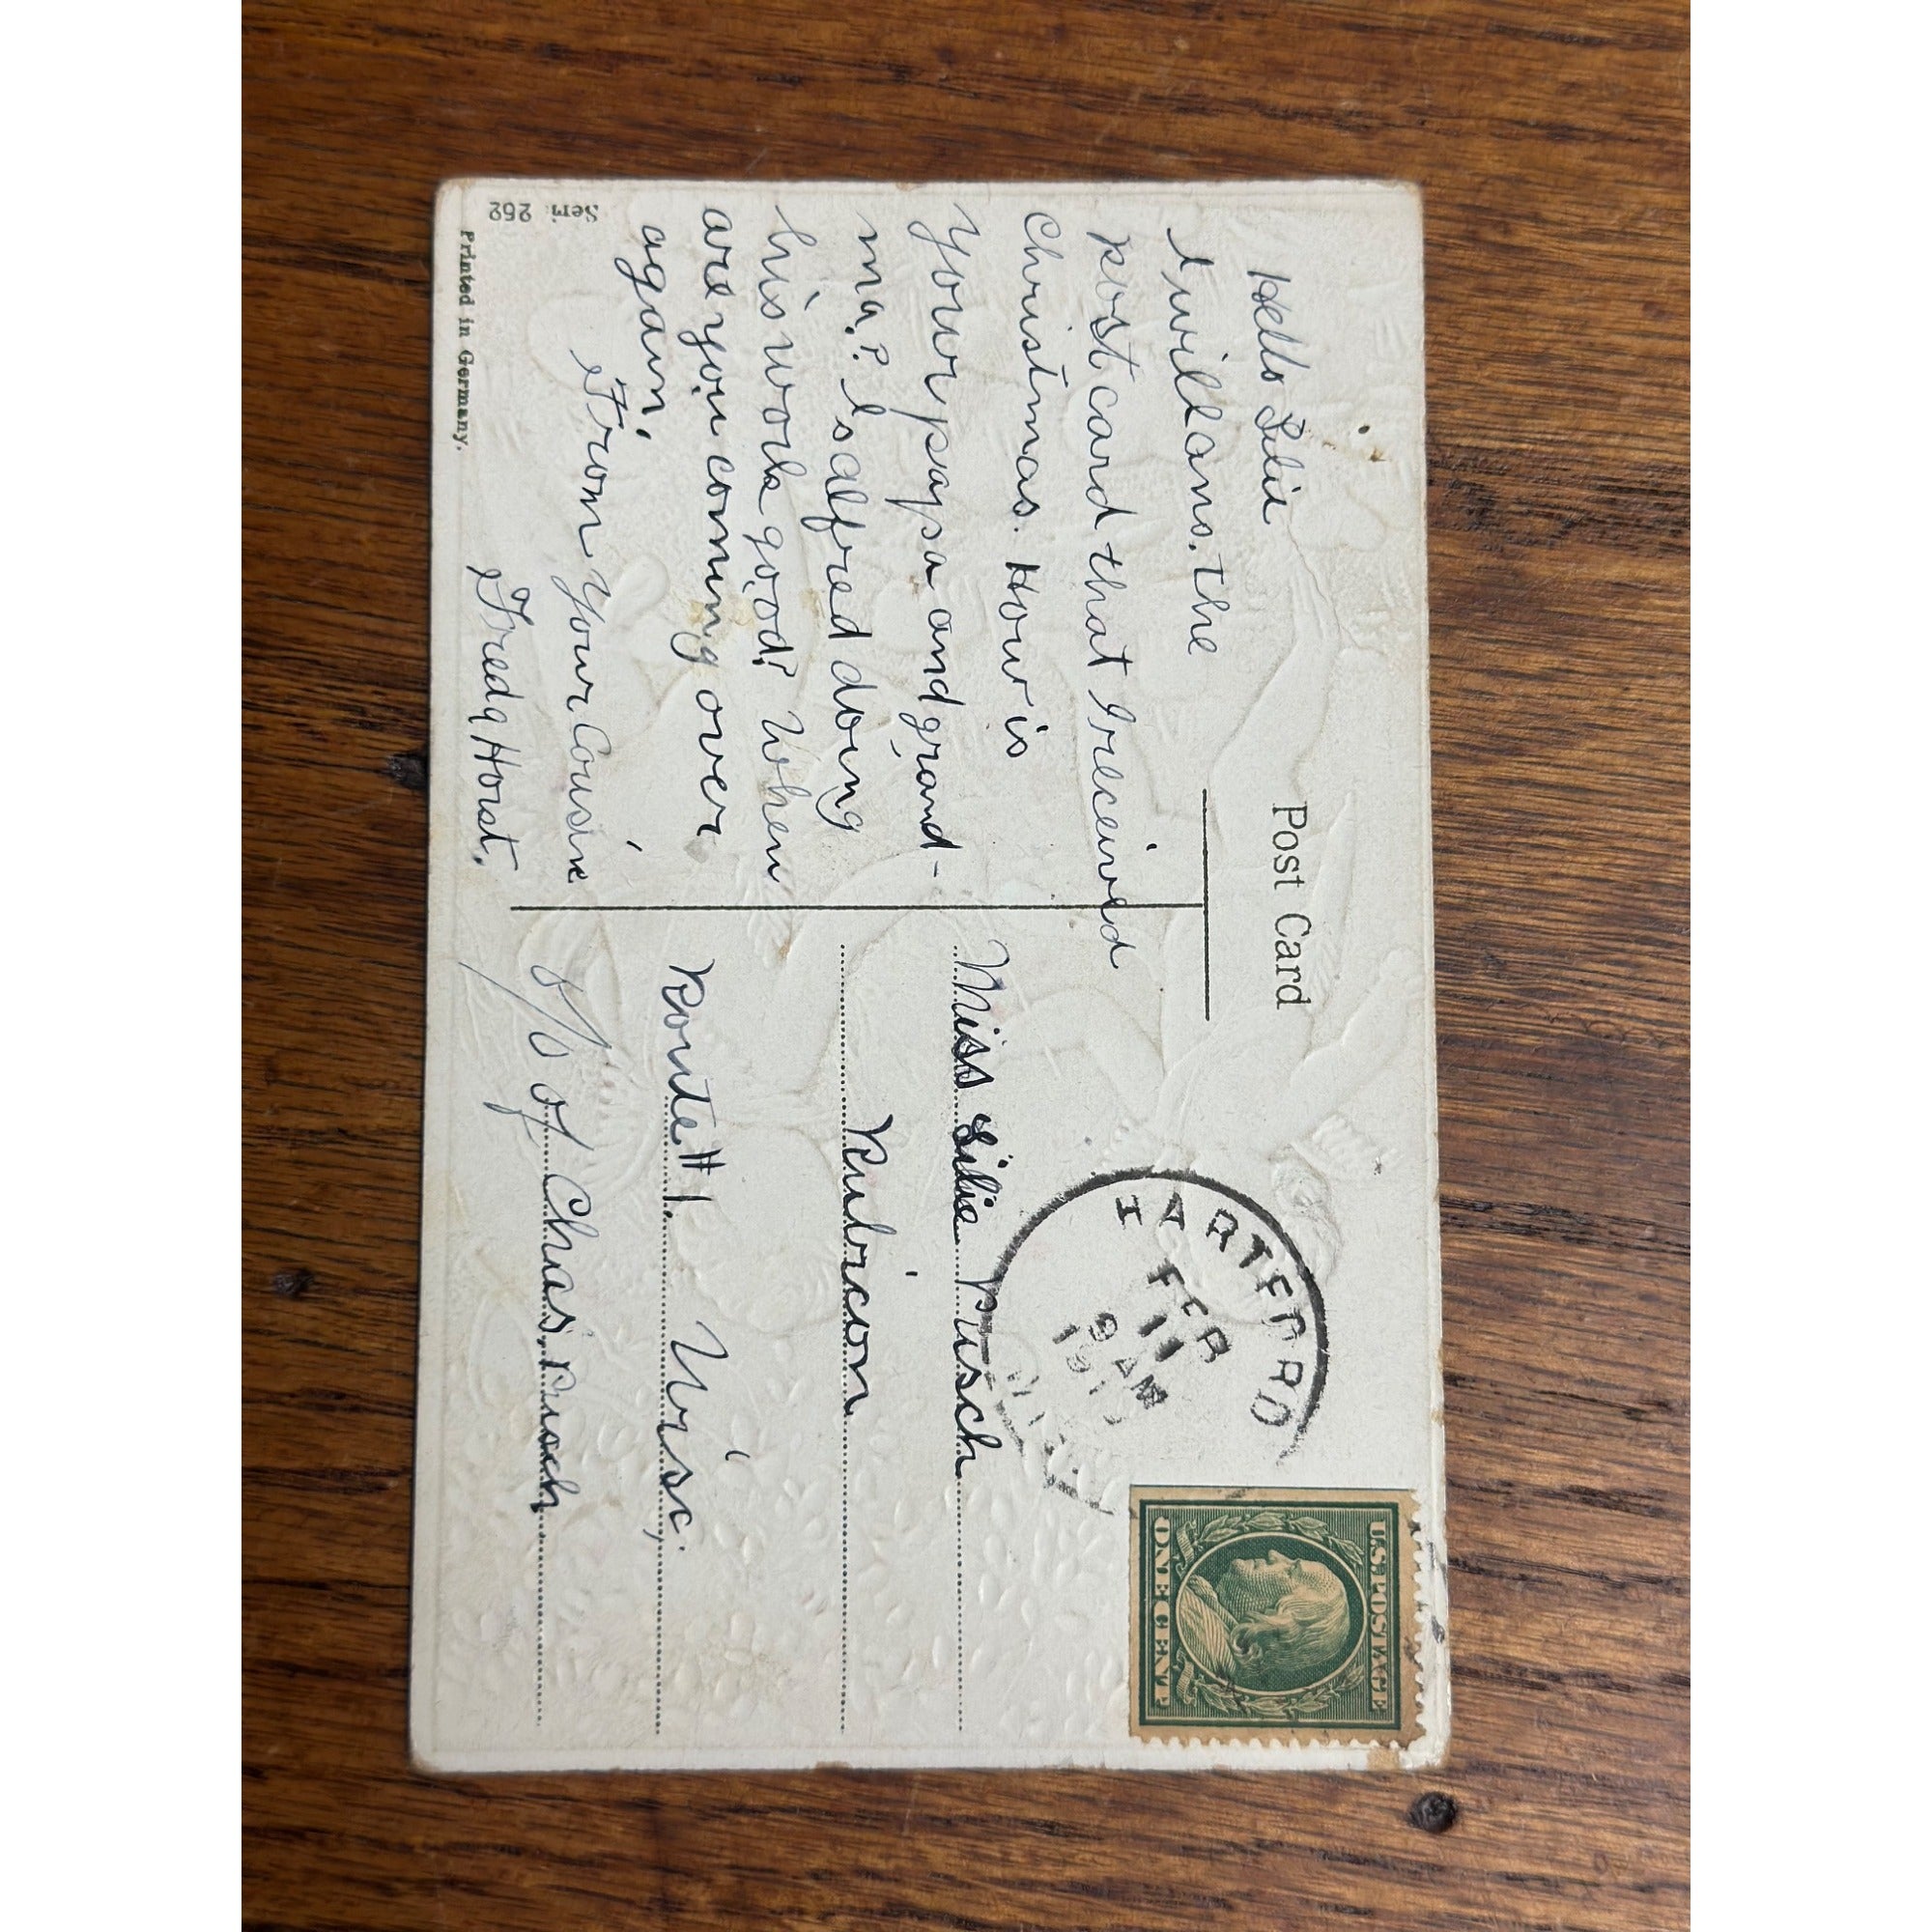 Post Card
Hello Lilie
I will ans. the
post card that I received
Christmas. How is
Your papa and grand-
ma? Is alfred doing
his work good? When
are you coming over
again.
From Your Cousin
Freda Horst.
HARTFORD
FEB
11
9 AM
191
U.S. POSTAGE
ONE CENT
Miss Lilie Busch
Rubicon
Route #1. Wisc.
c/o of Chas. Busch
Printed in Germany.
Seri 252